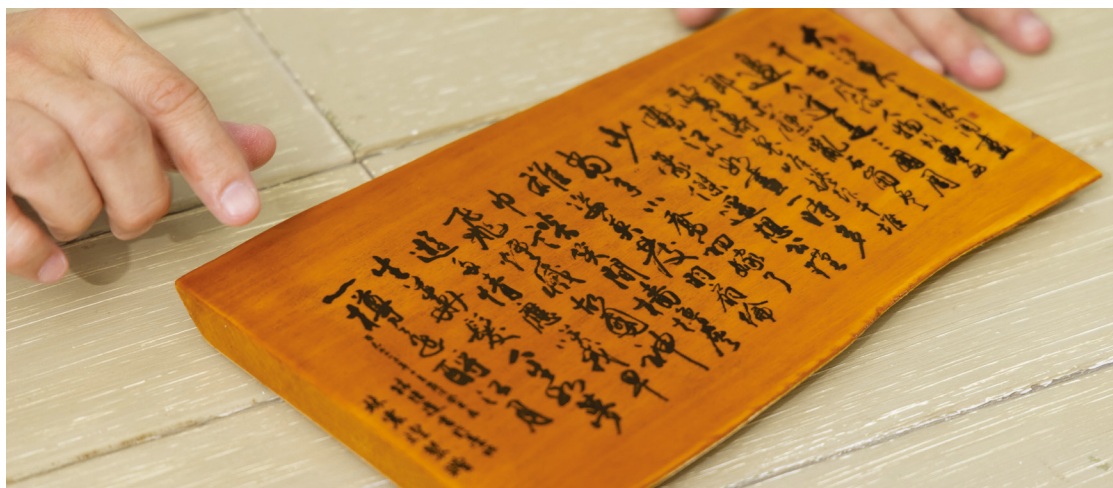 大江東去浪淘盡
千古風流人物故壘西
邊人道是三國周
郎赤壁亂石崩雲
驚濤拍岸捲起千堆
雪江山如畫一時多
少豪傑遙想公瑾
當年小喬初嫁了
雄姿英發羽扇綸
巾談笑間檣櫓灰
飛煙滅故國神
遊多情應笑我早
生華髮人生如夢
一樽還酹江月